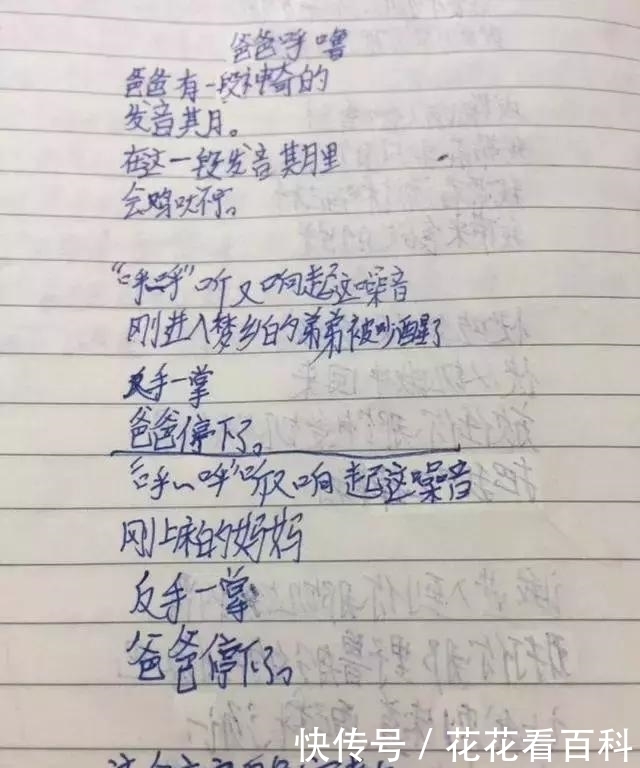 爸爸呼噜
爸爸有一段神奇的
发音期。
在这一段发音期里
会
“呼呼”听又响起这噪音
刚进入梦乡的弟弟被吵醒了
反手一掌
爸爸停下了。
“呼~呼”听又响起这噪音
刚上床的妈妈
反手一掌
爸爸停下了。
快传号 / 花花看百科